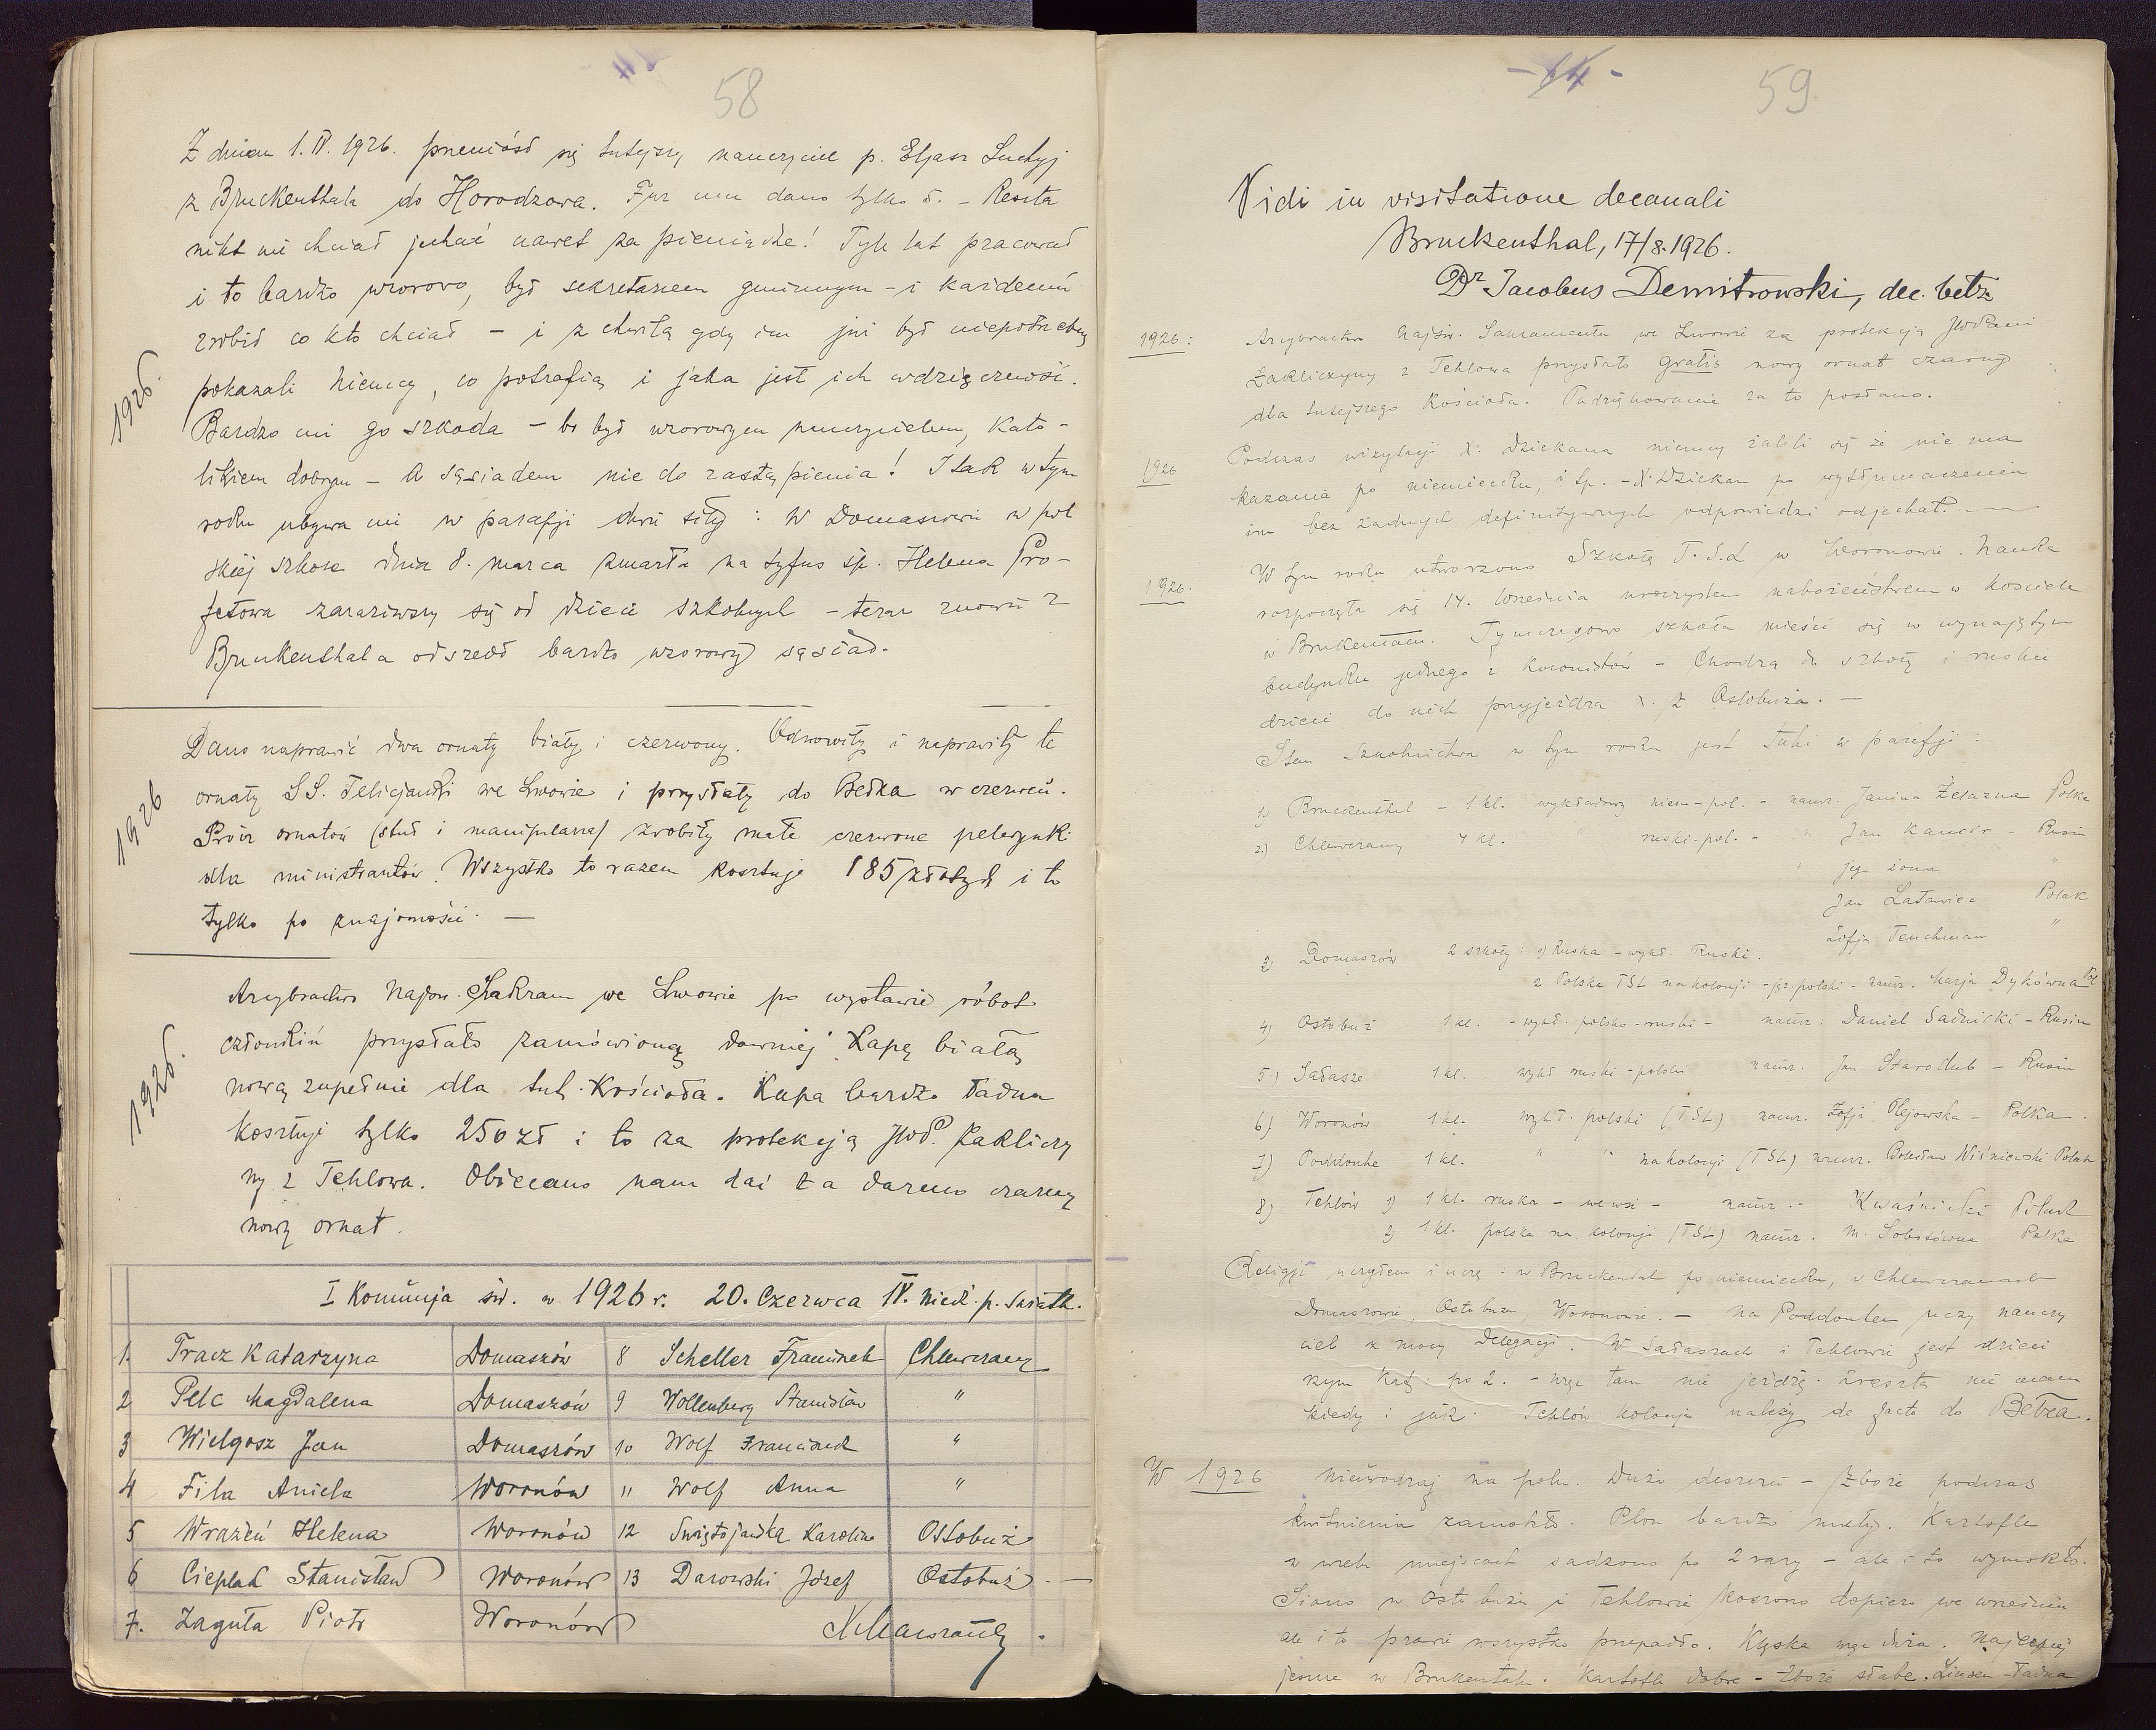 58
Z dniem 1. IV. 1926. przeniósł się tutejszy nauczyciel p. Eljasz Suchyj
z Bruckenthala do Horodzowa. Fur mu dano tylko 5. - Reszta
nikt nie chciał jechać nawet za pieniądze! Tyle lat pracował
i to bardzo wzorowo, był sekretarzem gminnym - i każdemu
zrobił co kto chciał - i z chwilą gdy im już był niepotrzebny
pokazali niemcy, co potrafią i jaka jest ich wdzięczność.
1926.
Bardzo mi go szkoda - bo był wzorowym nauczycielem, kato-
likiem dobrym - a sąsiadem nie do zastąpienia! I tak w tym
roku ubywa mi w parafji dwie siły: W Domaszowie w pol
skiej szkole dnia 8. marca zmarła na tyfus śp. Helena Pro-
fetowa zaraziwszy się od dzieci szkolnych - teraz znowu z
Bruckenthala odszedł bardzo wzorowy sąsiad.
Dano naprawić dwa ornaty biały i czerwony. Odnowiły i naprawiły te
1926
ornaty SS. Felicjanki we Lwowie i przysłały do Bełza w czerwcu.
Prócz ornatów (stuł i manipularza) zrobiły małe czerwone pelerynki
dla ministrantów. Wszystko to razem kosztuje 185 złotych i to
tylko po znajomości. -
Arcybractwo Najśw. Sakram we Lwowie po wystawie robót
1926.
członkiń przysłało zamówioną dawniej Kapę białą
nową zupełnie dla tut. Kościoła. Kapa bardzo ładna
kosztuje tylko 250 zł i to za protekcją JWP. Zakliczy
ny z Tehlowa. Obiecano nam dać za darmo czarny
nowy ornat.
I Komunja św. w 1926 r. 20. Czerwca IV. Niedz. p. Świątk.
1. Tracz Katarzyna Domaszów 8 Scheller Franciszek Chlewczany
2 Pelc Magdalena Domaszów 9 Wollenberg Stanisław "
3 Wielgosz Jan Domaszów 10 Wolf Franciszek "
4 Fila Aniela Woronów 11 Wolf Anna "
5 Wrażeń Helena Woronów 12 Świętojańska Karolina Ostobuż
6 Cieplak Stanisław Woronów 13 Darowski Józef Ostobuż. -
7. Zaguła Piotr Woronów
- 64 - 59
Vidi in visitatione decanali
Bruckenthal, 17/8. 1926.
Dr Jacobus Demitrowski, dec. bełz.
1926: Arcybractwo Najśw. Sakramentu we Lwowie za protekcją JWPani
Zakliczyny z Tehlowa przysłało gratis nowy ornat czarny
dla tutejszego Kościoła. Podziękowanie za to posłano.
1926 Podczas wizytacji X. Dziekana niemcy żalili się że nie ma
kazania po niemiecku, i tp. - X. Dziekan po wytłumaczeniu
im bez żadnych definitywnych odpowiedzi odjechał. -
1926. W tym roku utworzono Szkołę T.S.L w Woronowie. Nauka
rozpoczęła się 14. Września uroczystem nabożeństwem w kościele
w Brukentalu. Tymczasowo szkoła mieści się w wynajętym
budynku jednego z kolonistów - Chodzą do szkoły i ruskie
dzieci do nich przyjeżdża X. z Ostobuża. -
Stan Szkolnictwa w tym roku jest taki w parafji:
1) Bruckenthal - 1 kl. wykładowy niem-pol. - naucz. Janina Żelazna Polka
2.) Chlewczany 4 kl. " ruski-pol. - " Jan Kander - Rusin
" jego żona "
Jan Latawiec Polak
Zofja Teuchman "
3) Domaszów 2 szkoły: 1) Ruska - wykł. Ruski.
2 Polska TSL na kolonji - jęz. polski - naucz. Marja Dykówna
4) Ostobuż 1 kl. - wykł. polsko-ruski - naucz: Daniel Sadnicki - Rusin
5.) Sałasze 1 kl. wykł ruski-polski naucz. Jan Starodub - Rusin
6) Woronów 1 kl. wykł. polski (TSL) naucz. Zofja Olejowska - Polka.
7) Poddonhe 1 kl. " " na kolonji (TSL) naucz. Bolesław Wiśniewski Polak
8) Tehlów 1) 1 kl. ruska - we wsi - naucz. - Kwaśnicki Polak
2) 1 kl. polska na kolonji (TSL) naucz. M. Sobotówna Polka
Religji uczyłem i uczę: w Bruckental po niemiecku, w Chlewczanach
Domaszowie, Ostobużu, Woronowie. - Na uczy nauczy
ciel z mocy Delegacji. W Sałaszach i Tehlowie jest dzieci
rzym kat. po 2. - więc tam nie jeżdżę. Zresztą nie mam
kiedy i jak. Tehlów kolonja należy de facto do Bełza.
W 1926 Nieurodzaj na polu. Duże deszcze - Zboże podczas
kwitnienia zamokło. Plon bardzo mały. Kartofle
w wielu miejscach sadzono po 2 razy - ale i to wymokło.
Siano w Ostobużu i Tehlowie koszono dopiero we wrześniu
ale i to prawie wszystko przepadło. Klęska więc duża. Najlepiej
jeszcze w Brukentalu. Kartofle dobre - Zboże słabe. Linsen - ładna